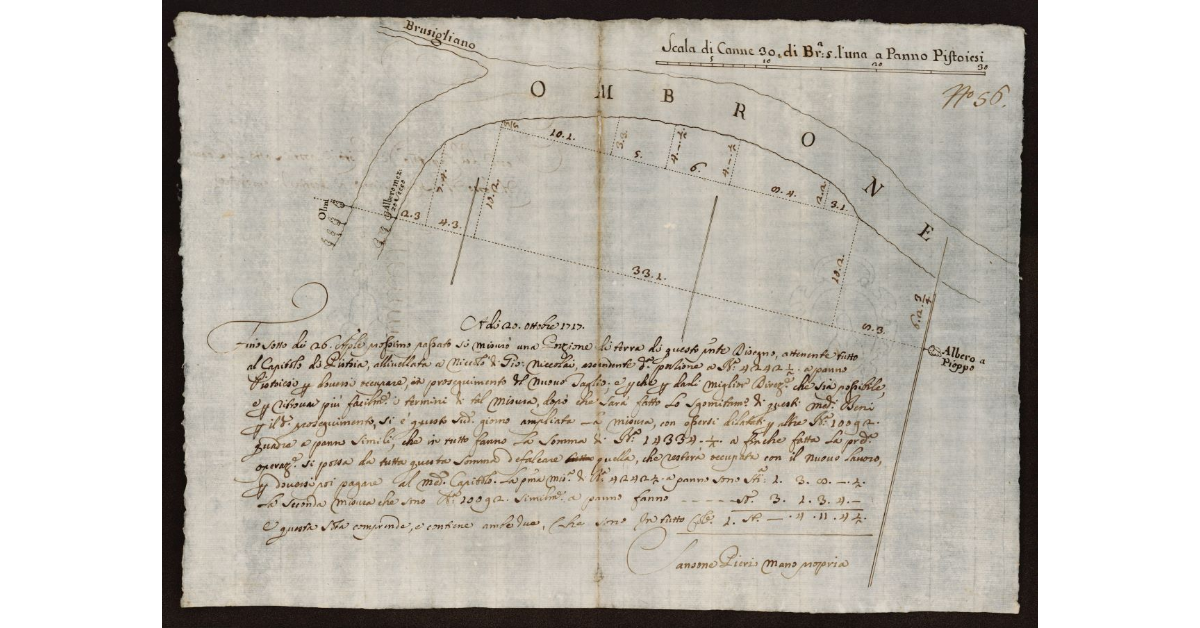 Brusigliano
Scala di Canne 30. di Br.ª 5. l'una a Panno Pistoiesi
5 10 20 30
Nº 56.
OMBRONE
10.1.
3.3.
5.
4.–½
6.
4.–½
8.4.
2.2.
3.1.
3.4.
10.2.
2.3
4.3.
33.1.
10.2.
8.3.
6.2.¾
Olmi
Albero a
Pioppo
A di 20. Ottobre 1717.
Fino sotto dì 26. Aprile prossimo passato si misurò una Porzione di terra di questo pnte Disegno, attenente tutto
al Capitolo di Pistoia, allivellata a Niccolò di Gio: Niccolai, ascendente dª porzione a Bª 4242½ a panno
Pistoiese p doversi occupare in proseguimento del Nuovo Taglio; e p che p darli miglior Direzº che sia possibile,
e p ritrovare più facilmº i termini di tal misura, dopo che sarà fatto lo
p il dº proseguimento, si è questo sudº giorno ampliata la misura, con essersi dilatati p altre Bª 10092.
quadre a panno simili, che in tutto fanno la somma di Bª 14334.½ a finche fatta la predª
operazº si possa da tutta questa somma defalcare quella, che resterà occupata con il nuovo lavoro,
p doversi poi pagare al medº Capitolo. La pma misª di Bª 4242½ a panno sono Stª 1. 3. 8.–½.
La seconda misura che sono Bª 10092. simili a panno fanno – – – – – Stª 3. 1. 3. 4.–
e questa Stª comprende, e contiene ambedue, che sono in tutto Cª 1. Stª –. 4. 11. 4½.
Sansone Pieri mano propria